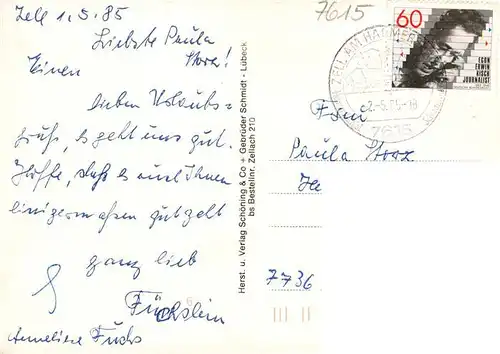 Zell 1.5.85
Liebste Paula
Storz!
Einen
lieben Urlaubs-
gruß, es geht uns gut.
Hoffe, daß es auch Ihnen
einigermaßen gut geht
ganz lieb
Füchslein
Anneliese Fuchs
Herst. u. Verlag Schöning & Co + Gebrüder Schmidt - Lübeck
bs Bestellnr. Zellach 210
7615
60
EGON
ERWIN
KISCH
JOURNALIST
ZELL AM HARMERSBACH
-2.-5.85-18
7615
Frau
Paula Storz
7736